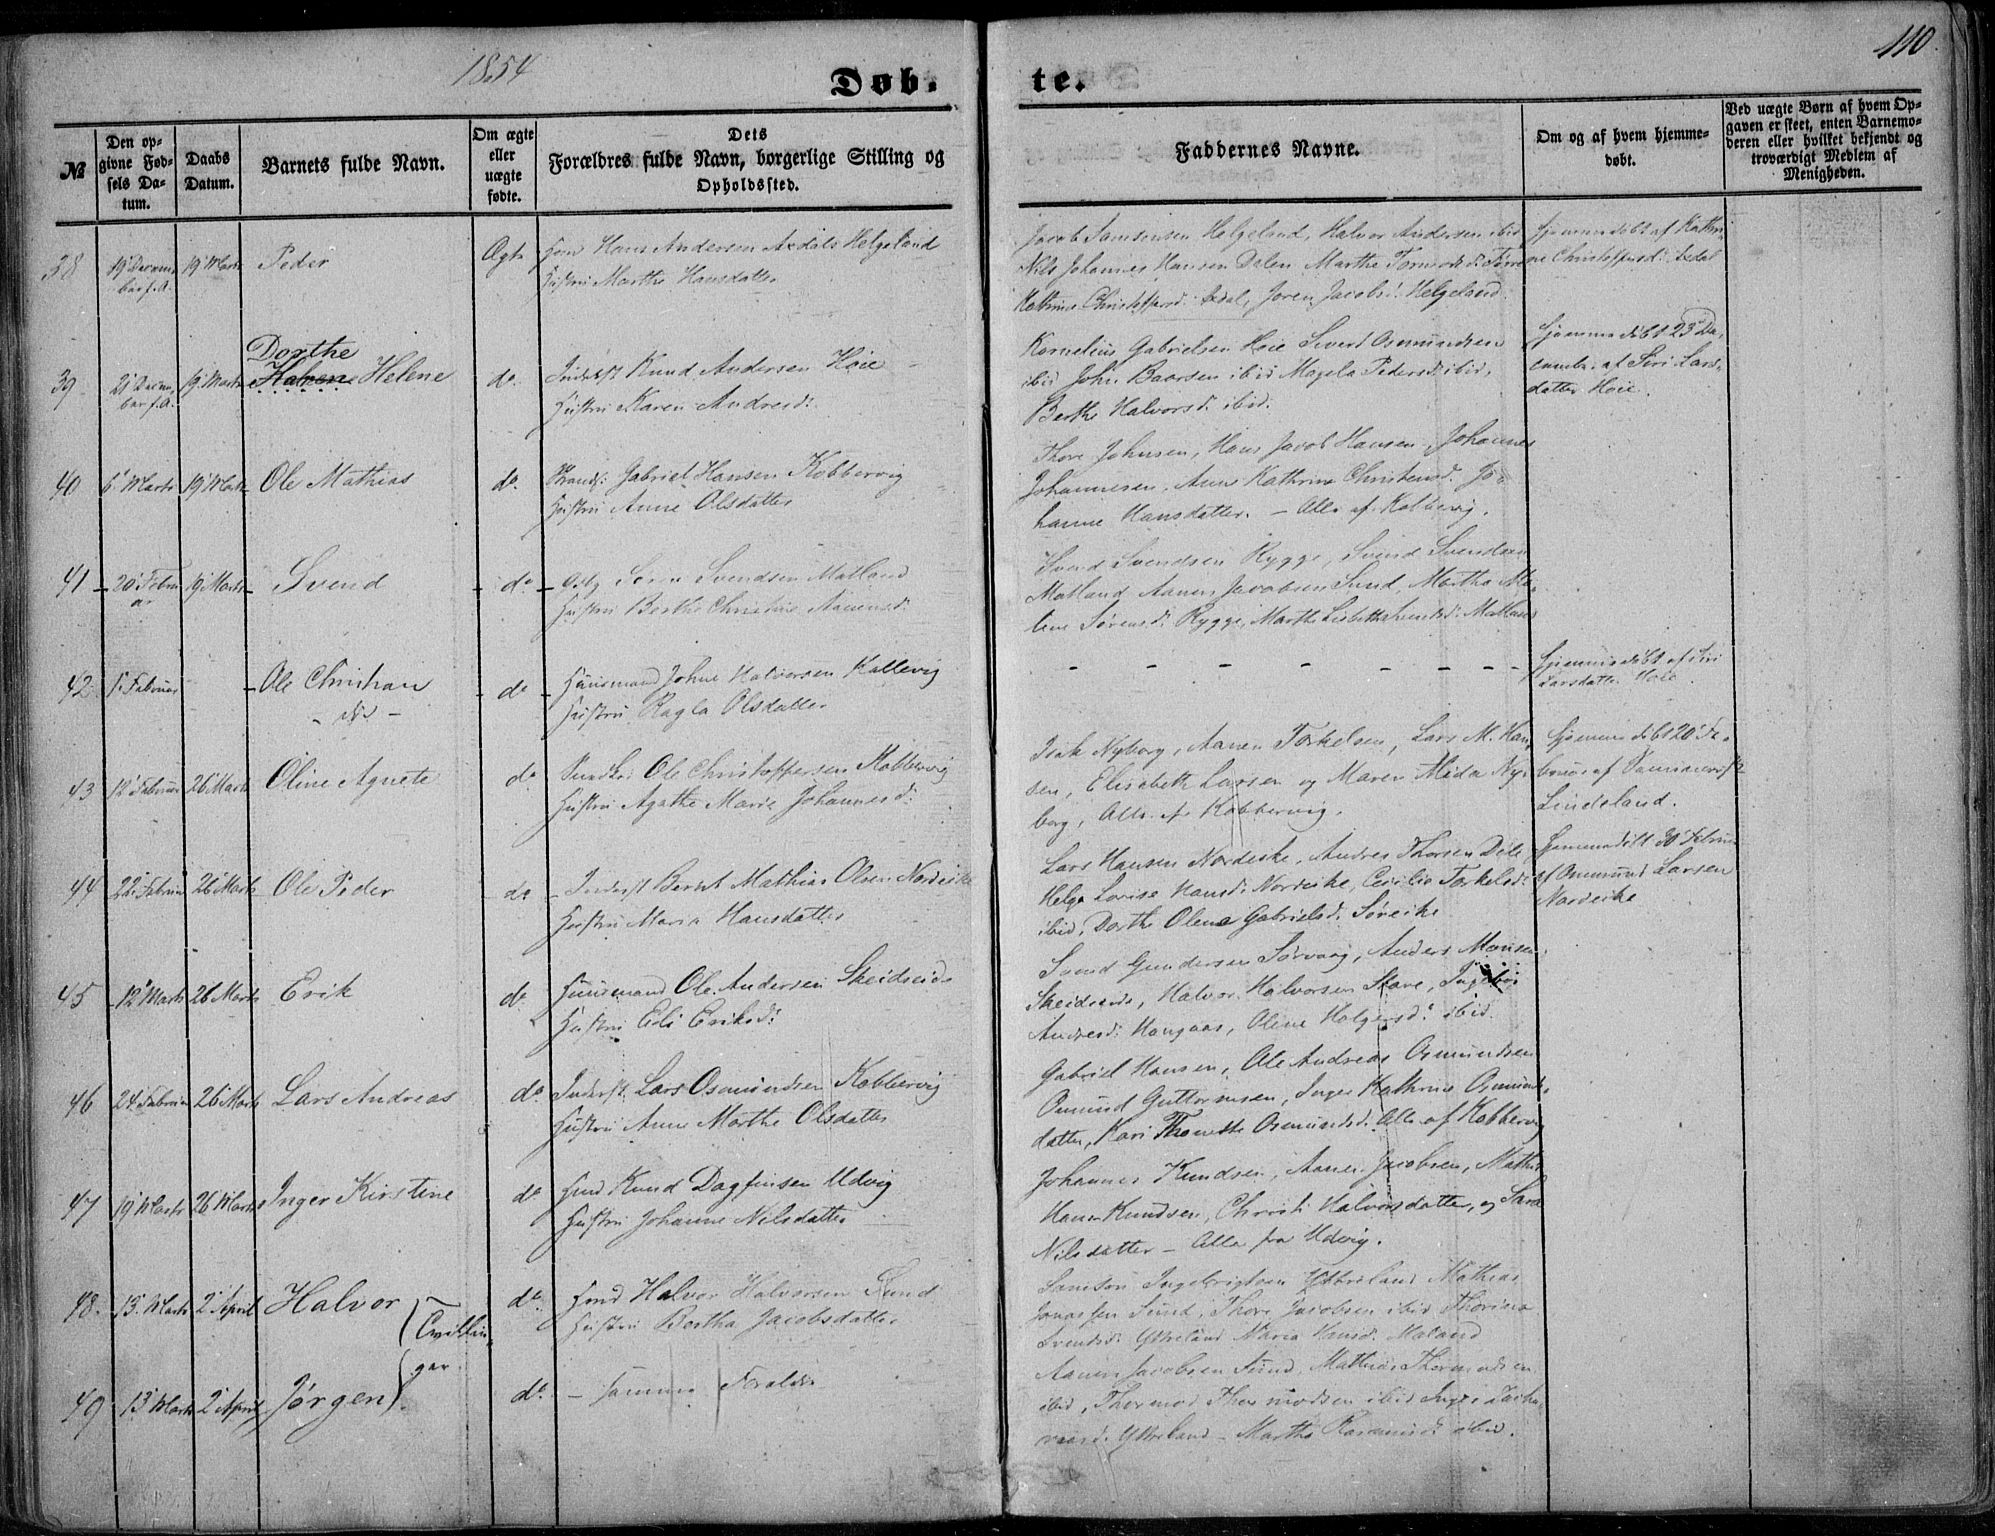 1854
110.
Døb. te.
№
Den op-
givne Fød-
sels Da-
tum.
Daabs
Datum.
Barnets fulde Navn.
Om ægte
eller
uægte
fødte.
Dets
Forældres fulde Navn, borgerlige Stilling og
Opholdssted.
Faddernes Navne.
Om og af hvem hjemme-
døbt.
Ved uægte Børn af hvem Op-
gaven er skeet, enten Barnemo-
deren eller hvilket bekjendt og
troværdigt Medlem af
Menigheden.
38 19 Decem 19 Marts Peder Ægte Hans Andersen Helgeland
ber f. A. Hustru Marthe Hansdatter
Jacob Samsonsen Helgeland, Halvor Andersen ibid
Nils Johannes Hansen Dalen Marthe
Kathrine Christoffersd. Jacobsd. Helgeland.
Hjemmedøbt af Kathri
ne Christoffersd.
Dorthe
39 21 Decem 19 Marts Helene do. Inderst Knud Andersen Høie
ber f. A. Hustru Karen Andresd.
Kornelius Gabrielsen Høie Sivert Osmundsen
ibid John Baarsen ibid Magela Pedersd. ibid,
Berthe Halvorsd. ibid.
Hjemmedøbt 23 De
cember af Siri Lars
datter Høie.
40 6 Marts 19 Marts Ole Mathias do. Gabriel Hansen Kobbervig
Hustru Anne Olsdatter
Thore Johnsen, Hans Jacob Hansen, Johannes
Johannesen, Ane Kathrine Christensd. Jo-
hanne Hansdatter. – Alle af Kobbervig.
41 – 20 Febru 19 Marts – Svend – do. – Svendsen Matland
ar Hustru Berthe Christine Aanensd.
Svend Svendsen Rygge, Svend Svendsen
Matland Aanen Jacobsen Sund, Martha Ma-
lene Sørensd. Rygge, Marthe Lisbetha Svendsd. Matland
42 1 Februar – Ole Christian – do – Huusmand Johne Halvorsen Kallevig
Hustru Ragla Olsdatter
– – – – – – – –
Hjemmedøbt af Siri
Larsdatter Høie.
43 12 Februar 26 Marts Oline Agnete do Ole Christoffersen Kobbervig
Hustru Agathe Marie Johannesd.
Isak Nyborg, Aanen Torkelsen, Lars M. Han
sen, Elisebeth Larsen og Maren Ny-
borg, Alle af Kobbervig.
Hjemmedøbt 20 Fe
bruar af
Lindeland.
44 22 Februar 26 Marts Ole Peder do – Inderst Bernt Mathias Olsen Nordeike
Hustru Maria Hansdatter
Lars Hansen Nordeike, Andres Thorsen
Helga Lovise Hansd. Nordeike, Cecilie Torkelsd.
ibid, Dorthe Olene Gabrielsd. Søreike
Hjemmedøbt Februar
af Osmund Larsen
Nordeike
45 12 Marts 26 Marts Erik do. Huusmand Ole Andersen Skeidseide
Hustru Eli Eriksd.
Svend Gundersen Sørvaag, Anders Monsen
Skeidseide, Halvor Halvorsen Stave, Ingebor
Andresd. Haugaas, Olene Holgersd. ibid
46 24 Februar 26 Marts Lars Andreas do. Inderst. Lars Osmundsen Kobbervig
Hustru Anne Marthe Olsdatter
Gabriel Hansen, Ole Andreas Osmundsen
Osmund Guttormsen, Inger Kathrine Osmunds
datter, Kari Osmundsd. Alle af Kobbervig
47 19 Marts 26 Marts Inger Kirstine do Knud Dagfinsen Udvig
Hustru Johanne Nilsdatter
Johannes Knudsen, Aanen Jacobsen,
Knudsen, Halvorsdatter, og Sara
Nilsdatter – Alle fra Udvig.
48. 13. Marts 2 April Halvor do. Halvor Halvorsen Sund
Hustru Bertha Jacobsdatter
Tvillin-
ger.
Samson Ytreland Mathias
Sund, Thore Jacobsen ibid Thorine
Svendsd. Ytreland Maria Hansd.
49 13 Marts 2 April Jørgen. do. – samme Forældre
Aanen Jacobsen Sund, Mathias Thormodsen
ibid, Thormod Thormodsen ibid Inger
Ytreland – Martha ibid.